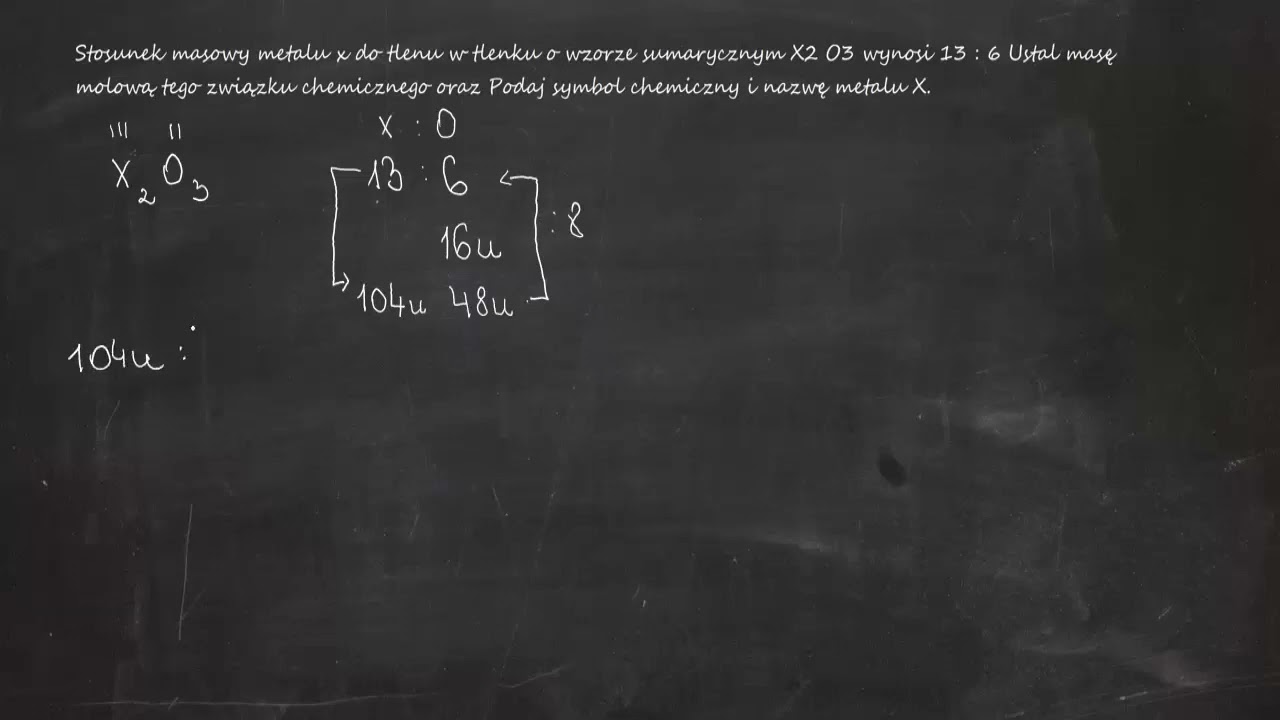 Stosunek masowy metalu x do tlenu w tlenku o wzorze sumarycznym X2 O3 wynosi 13 : 6 Ustal masę
molową tego związku chemicznego oraz Podaj symbol chemiczny i nazwę metalu X.
III II
X : O
X2O3
13 : 6
: 8
16u
104u 48u
104u :